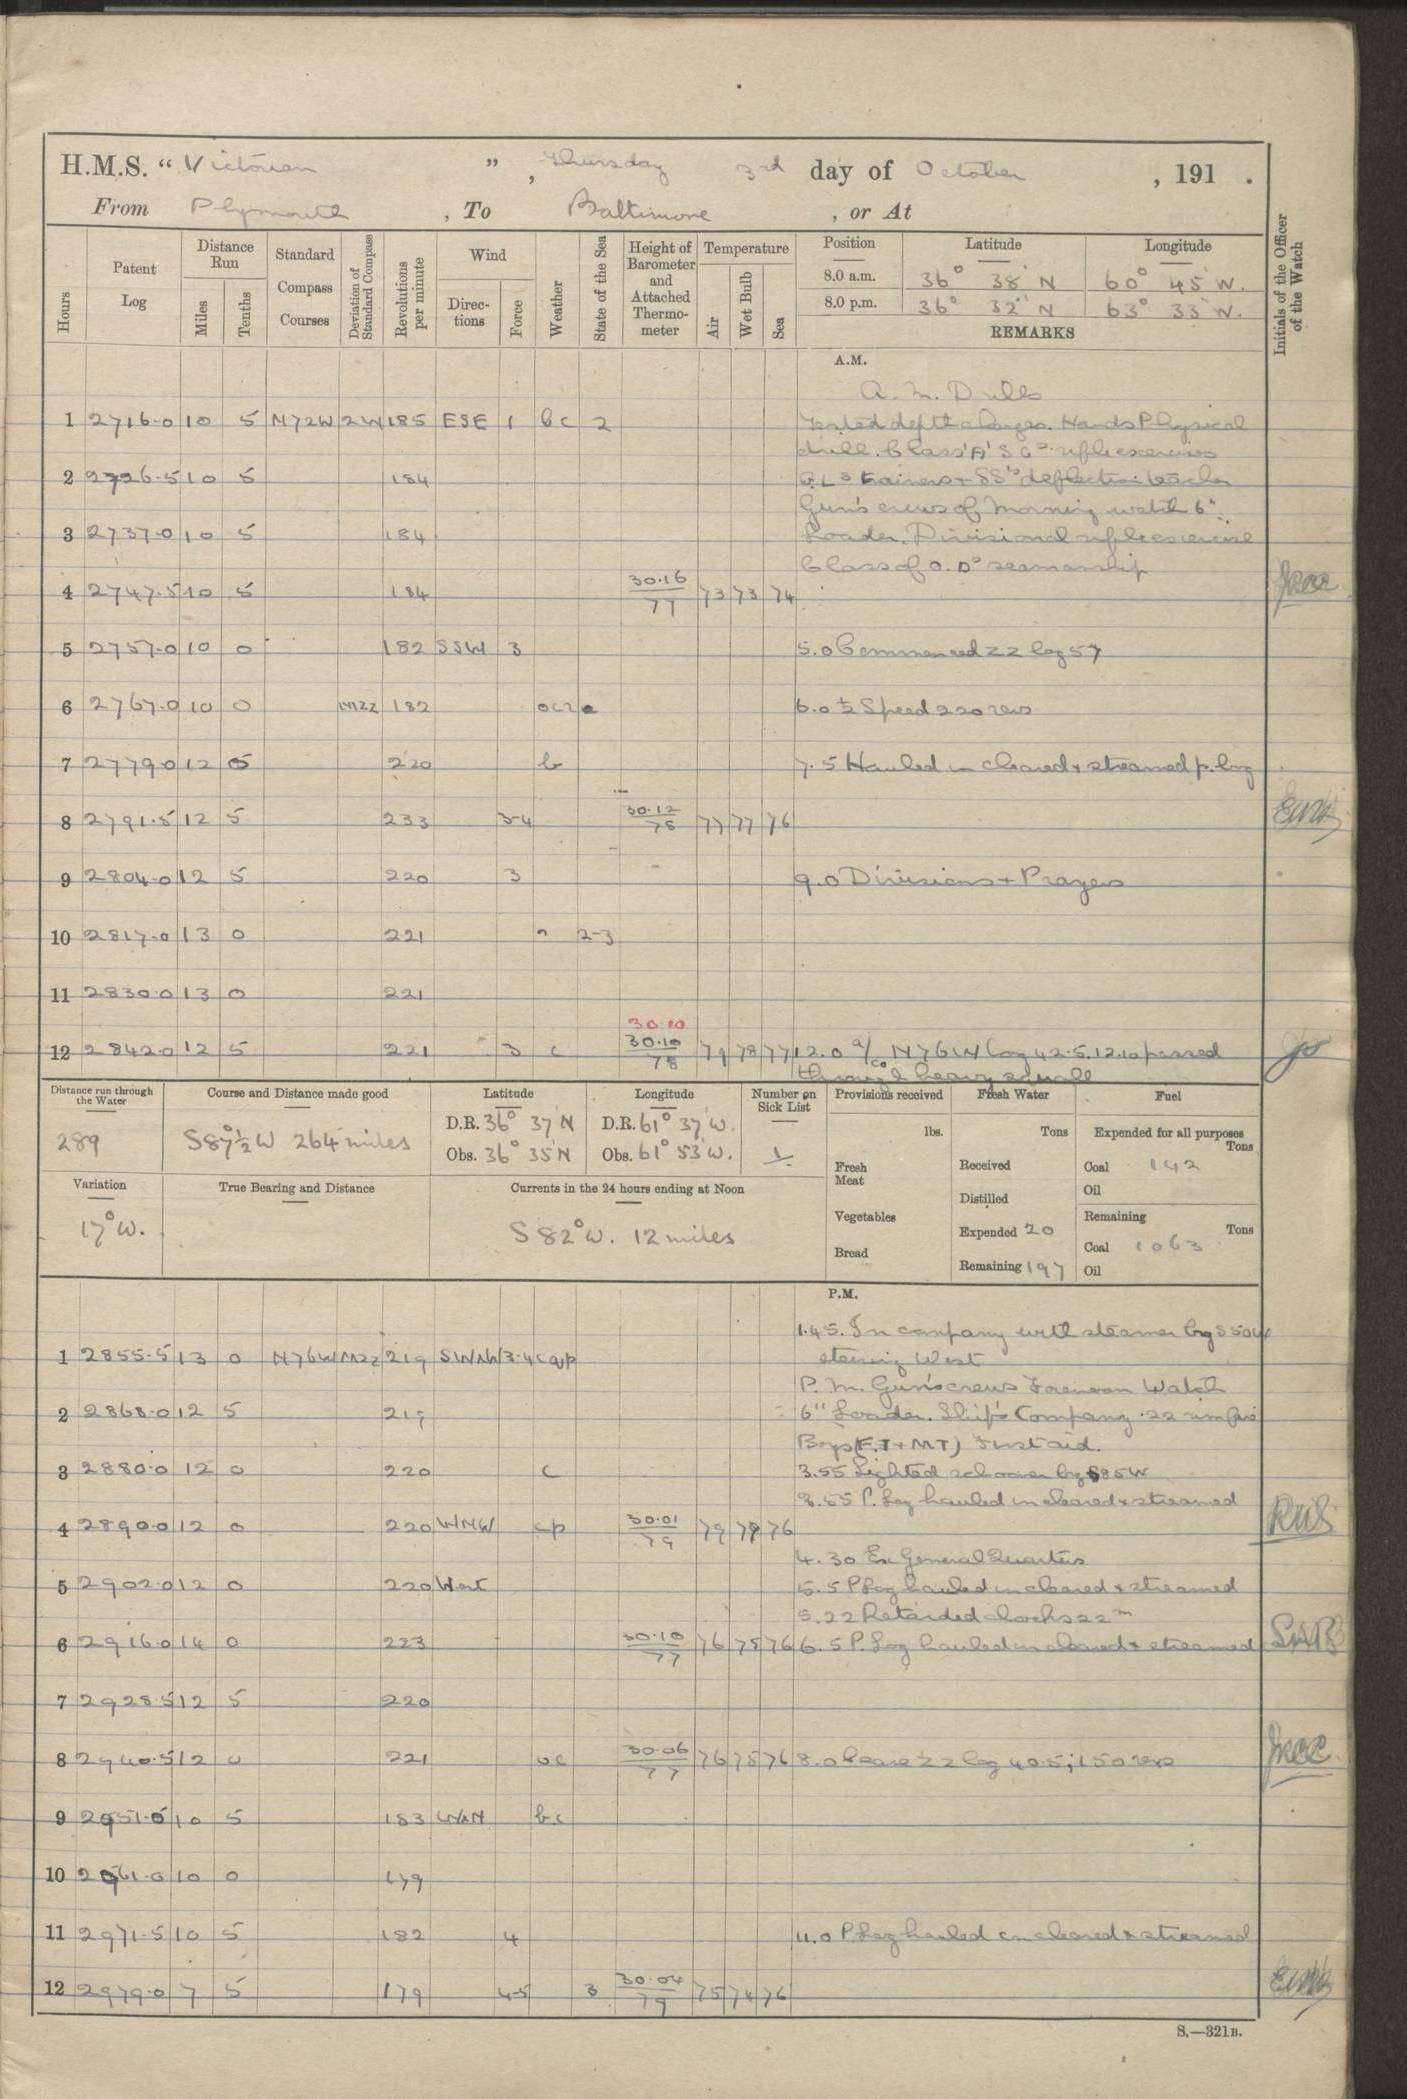 H.M.S. "Victorian", Thursday 3rd day of October, 191 .
From Plymouth, To Baltimore, or At
Hours
Patent Log
Distance Run
Miles
Tenths
Standard Compass Courses
Deviation of Standard Compass
Revolutions per minute
Wind
Directions
Force
Weather
State of the Sea
Height of Barometer and Attached Thermometer
Temperature
Air
Wet Bulb
Sea
Position Latitude Longitude
8.0 a.m. 36° 38' N 60° 45' W.
8.0 p.m. 36° 32' N 63° 33' W.
REMARKS
Initials of the Officer of the Watch
A.M.
A.M. Drills
1 2716.0 10 5 N72W 2W 185 ESE 1 bc 2 Tested depth charges. Hands Physical
drill. Class 'A' S Gs rifle exercises
2 2726.5 10 5 184 G.Ls trainers + SSs deflection teacher
Gun's crews of Morning watch 6".
3 2737.0 10 5 184 Loader. Divisional rifle exercise
Class of O.Ds seamanship
4 2747.5 10 5 184 30.16/77 73 73 74
5 2757.0 10 0 182 SSW 3 5.0 Commenced zz log 57
6 2767.0 10 0 MZZ 182 6.0 ½ Speed 220 revs
7 2779.0 12 5 220 b 7.5 Hauled in cleared + streamed p. log
8 2791.5 12 5 233 3-4 30.12/78 77 77 76
9 2804.0 12 5 220 3 9.0 Divisions + Prayers
10 2817.0 13 0 221 2-3
11 2830.0 13 0 221
30.10
12 2842.0 12 5 221 3 c 30.10/78 79 78 77 12.0 a/co N76W log 42.5. 12.10 passed
through heavy squall
Distance run through the Water
289
Course and Distance made good
S87½°W 264 miles
Latitude
D.R. 36° 37' N
Obs. 36° 35' N
Longitude
D.R. 61° 37' W.
Obs. 61° 53' W.
Number on Sick List
1
Provisions received
lbs.
Fresh Meat
Vegetables
Bread
Fresh Water
Tons
Received
Distilled
Expended 20
Remaining 197
Fuel
Expended for all purposes
Tons
Coal 142
Oil
Remaining
Tons
Coal 1063
Oil
Variation
17° W.
True Bearing and Distance
Currents in the 24 hours ending at Noon
S 82° W. 12 miles
P.M.
1.45. In company with steamer brg S50W
1 2855.5 13 0 N76W MZZ 219 SWxW 3-4 cqp steering West
P.M. Gun's crews Forenoon Watch
2 2868.0 12 5 219 6" Loader. Ship's Company .22 rim fire
Boys (E.T + M.T) First aid.
3 2880.0 12 0 220 c 3.55 Sighted schooner brg S85W
3.55 P. Log hauled in cleared + streamed
4 2890.0 12 0 220 WNW cp 30.01/79 79 79 76
4.30 Ex General Quarters
5 2902.0 12 0 220 West 5.5 P Log hauled in cleared + streamed
5.22 Retarded clocks 22m
6 2916.0 14 0 223 30.10/77 76 75 76 6.5 P. Log hauled in cleared + streamed
7 2928.5 12 5 220
8 2940.5 12 0 221 oc 30.06/77 76 75 76 8.0 Cease zz log 40.5; 150 revs
9 2951.0 10 5 183 WxN bc
10 2961.0 10 0 179
11 2971.5 10 5 182 4 11.0 P Log hauled in cleared + streamed
12 2979.0 7 5 179 4-5 3 30.04/79 75 74 76
S.—321B.